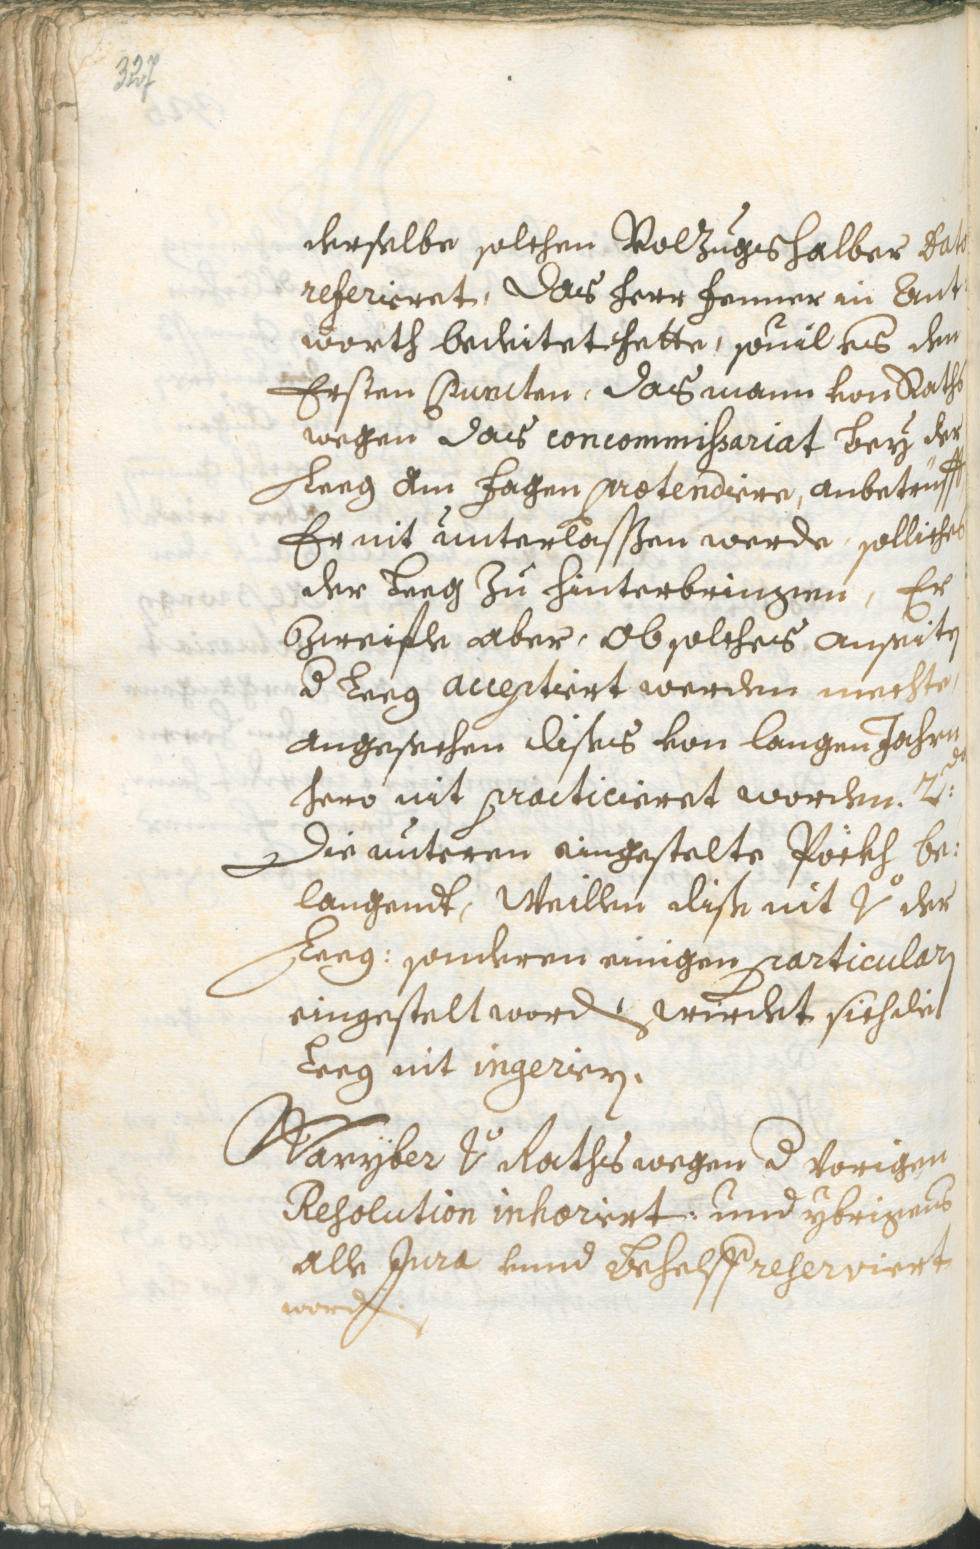 327
derselbe solchen Volzugs halber dato
referieret, Das herr Fenner in Ant¬
worth bedeitet hette, souil es den
Ersten Puncten, das mann von Raths
wegen das concommissariat bey der
Leeg Am Hagen prætendiere, anbetrüfft
Er nit unterlassen werde, solliches
der Leeg Zu hinterbringen, Er
Zweifle aber, ob solches anseiten
d Leeg acceptiert werden mechte,
angesechen dises von langen Jahrn
hero nit practicieret worden. 2do:
Die unteren eingestelte Pöckh be:
langendt, Weillen dise nit Vo der
Leeg: sonderen einigen particularn
eingestelt worden, wirdet sich die
Leeg nit ingerirn.
Waryber Vo Raths wegen d Vorigen
Resolution inhæriert: und ybrigens
alle Jura vnnd Behelff reserviert
worden.